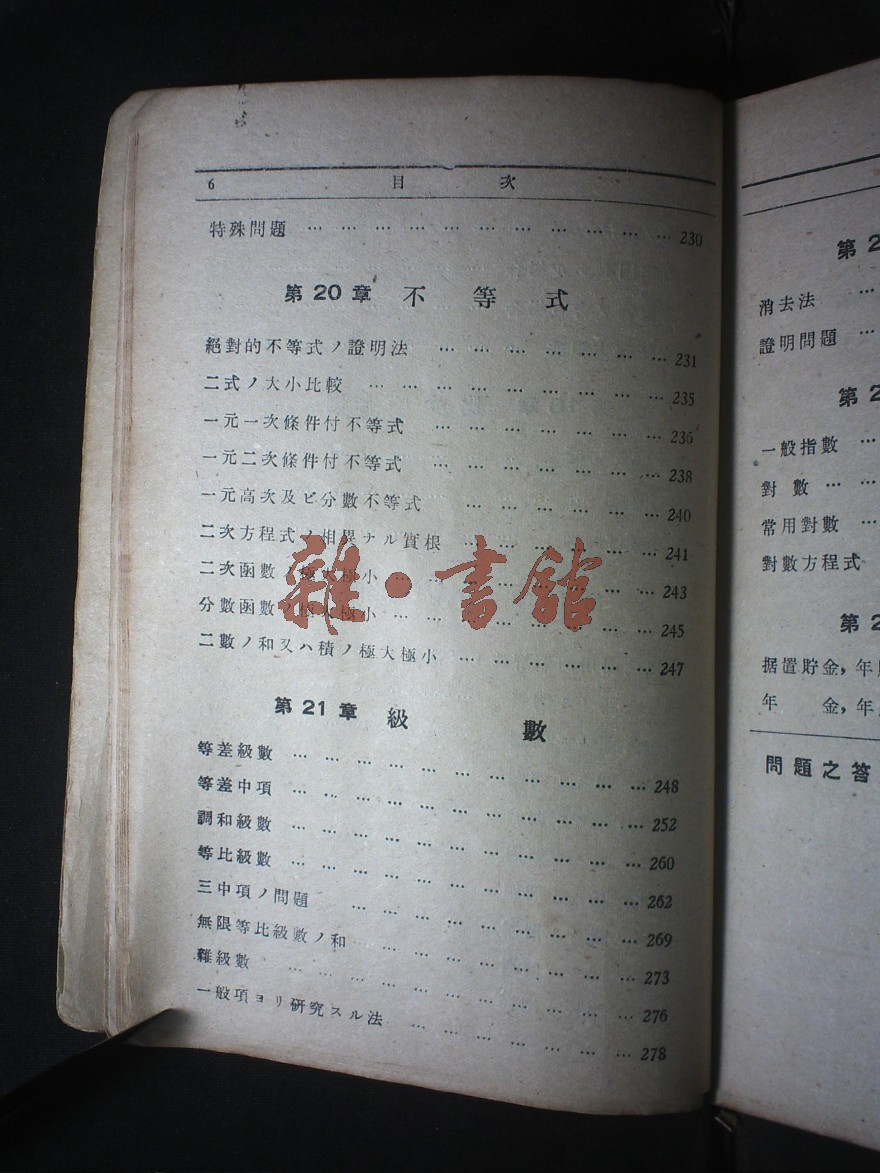 6 目 次
特殊問題 … … … … … … … … … … … 230
第20章 不 等 式
絕對的不等式ノ證明法 … … … … … … … 231
二式ノ大小比較 … … … … … … … … … 235
一元一次條件付不等式 … … … … … … … 236
一元二次條件付不等式 … … … … … … … 238
一元高次及ビ分數不等式 … … … … … … 240
二次方程式ノ相異ナル實根 … … … … … … 241
二次函數 極大極小 … … … … … … … … 243
分數函數ノ極大極小 … … … … … … … … 245
二數ノ和又ハ積ノ極大極小 … … … … … … 247
第21章 級 數
等差級數 … … … … … … … … … … … 248
等差中項 … … … … … … … … … … … 252
調和級數 … … … … … … … … … … … 260
等比級數 … … … … … … … … … … … 262
三中項ノ問題 … … … … … … … … … 269
無限等比級數ノ和 … … … … … … … … 273
雜級數 … … … … … … … … … … … 276
一般項ヨリ研究スル法 … … … … … … … 278
雜·書館
第2
消去法 …
證明問題 …
第2
一般指數 …
對 數 … …
常用對數 …
對數方程式
第2
据置貯金, 年
年 金, 年
問題之答